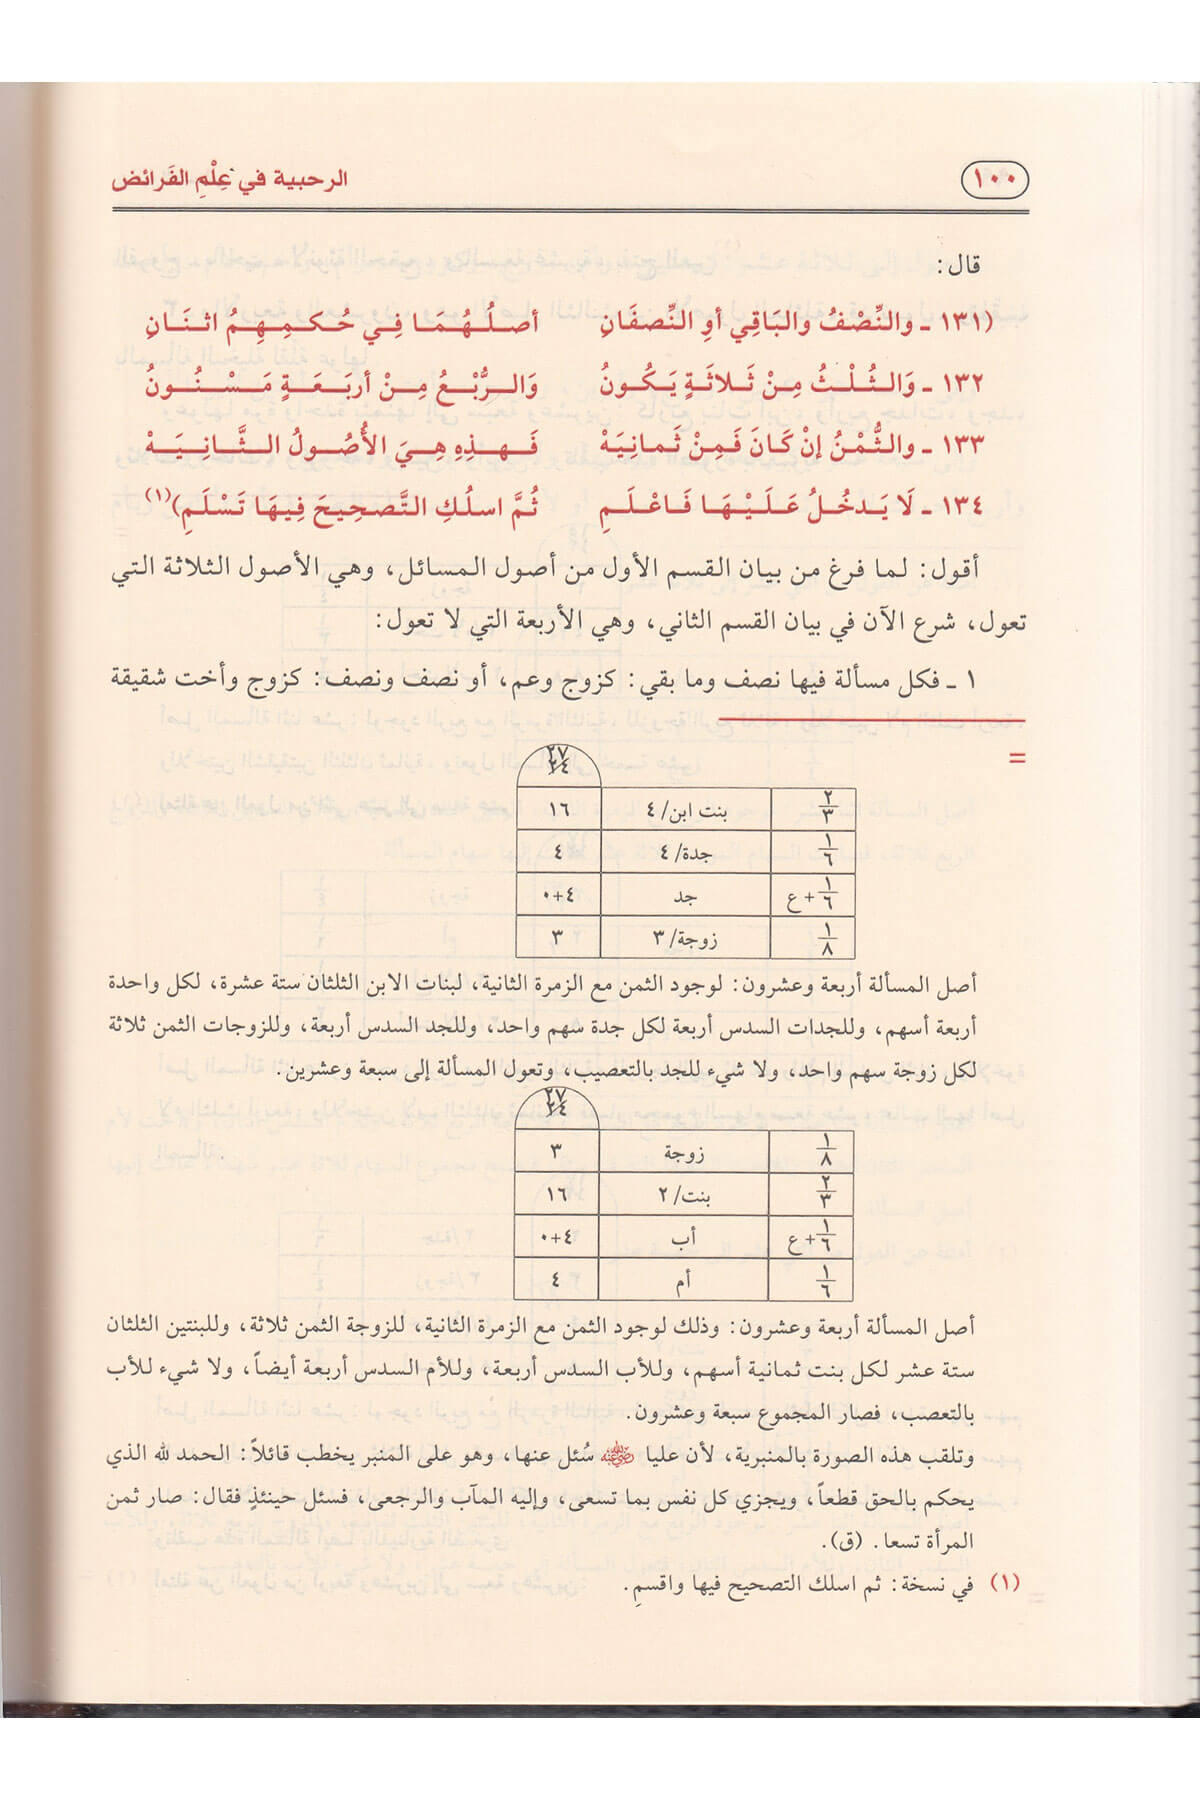 ١٠٠
الرحبية في عِلْمِ الفَرائض
قال:
(١٣١ ـ والنِّصْفُ والبَاقِي أوِ النِّصفَانِ أصلُهُمَا فِي حُكمِهِمُ اثنَانِ
١٣٢ ـ وَالثُلْثُ مِنْ ثَلاثَةٍ يَكُونُ وَالرُّبْعُ مِنْ أربَعَةٍ مَسْنُونُ
١٣٣ ـ والثُّمْنُ إنْ كَانَ فَمِنْ ثَمانِيَهْ فَهذِهِ هِيَ الأُصُولُ الثَّانِيَهْ
١٣٤ ـ لَا يَدخُلُ عَلَيْهَا فَاعْلَمِ ثُمَّ اسلُكِ التَّصْحِيحَ فِيهَا تَسْلَمِ)(١)
أقول: لما فرغ من بيان القسم الأول من أصول المسائل، وهي الأصول الثلاثة التي
تعول، شرع الآن في بيان القسم الثاني، وهي الأربعة التي لا تعول:
١ ـ فكل مسألة فيها نصف وما بقي: كزوج وعم، أو نصف ونصف: كزوج وأخت شقيقة
=
٢٧
٢٤
٢/٣ بنت ابن/ ٤ ١٦
١/٦ جدة/ ٤ ٤
١/٦ + ع جد ٤+٠
١/٨ زوجة/ ٣ ٣
أصل المسألة أربعة وعشرون: لوجود الثمن مع الزمرة الثانية، لبنات الابن الثلثان ستة عشرة، لكل واحدة
أربعة أسهم، وللجدات السدس أربعة لكل جدة سهم واحد، وللجد السدس أربعة، وللزوجات الثمن ثلاثة
لكل زوجة سهم واحد، ولا شيء للجد بالتعصيب، وتعول المسألة إلى سبعة وعشرين.
٢٧
٢٤
١/٨ زوجة ٣
٢/٣ بنت/ ٢ ١٦
١/٦ + ع أب ٤+٠
١/٦ أم ٤
أصل المسألة أربعة وعشرون: وذلك لوجود الثمن مع الزمرة الثانية، للزوجة الثمن ثلاثة، وللبنتين الثلثان
ستة عشر لكل بنت ثمانية أسهم، وللأب السدس أربعة، وللأم السدس أربعة أيضاً، ولا شيء للأب
بالتعصب، فصار المجموع سبعة وعشرون.
وتلقب هذه الصورة بالمنبرية، لأن عليا رضي الله عنه سُئل عنها، وهو على المنبر يخطب قائلاً: الحمد لله الذي
يحكم بالحق قطعاً، ويجزي كل نفس بما تسعى، وإليه المآب والرجعى، فسئل حينئذٍ فقال: صار ثمن
المرأة تسعا. (ق).
(١) في نسخة: ثم اسلك التصحيح فيها واقسمِ.